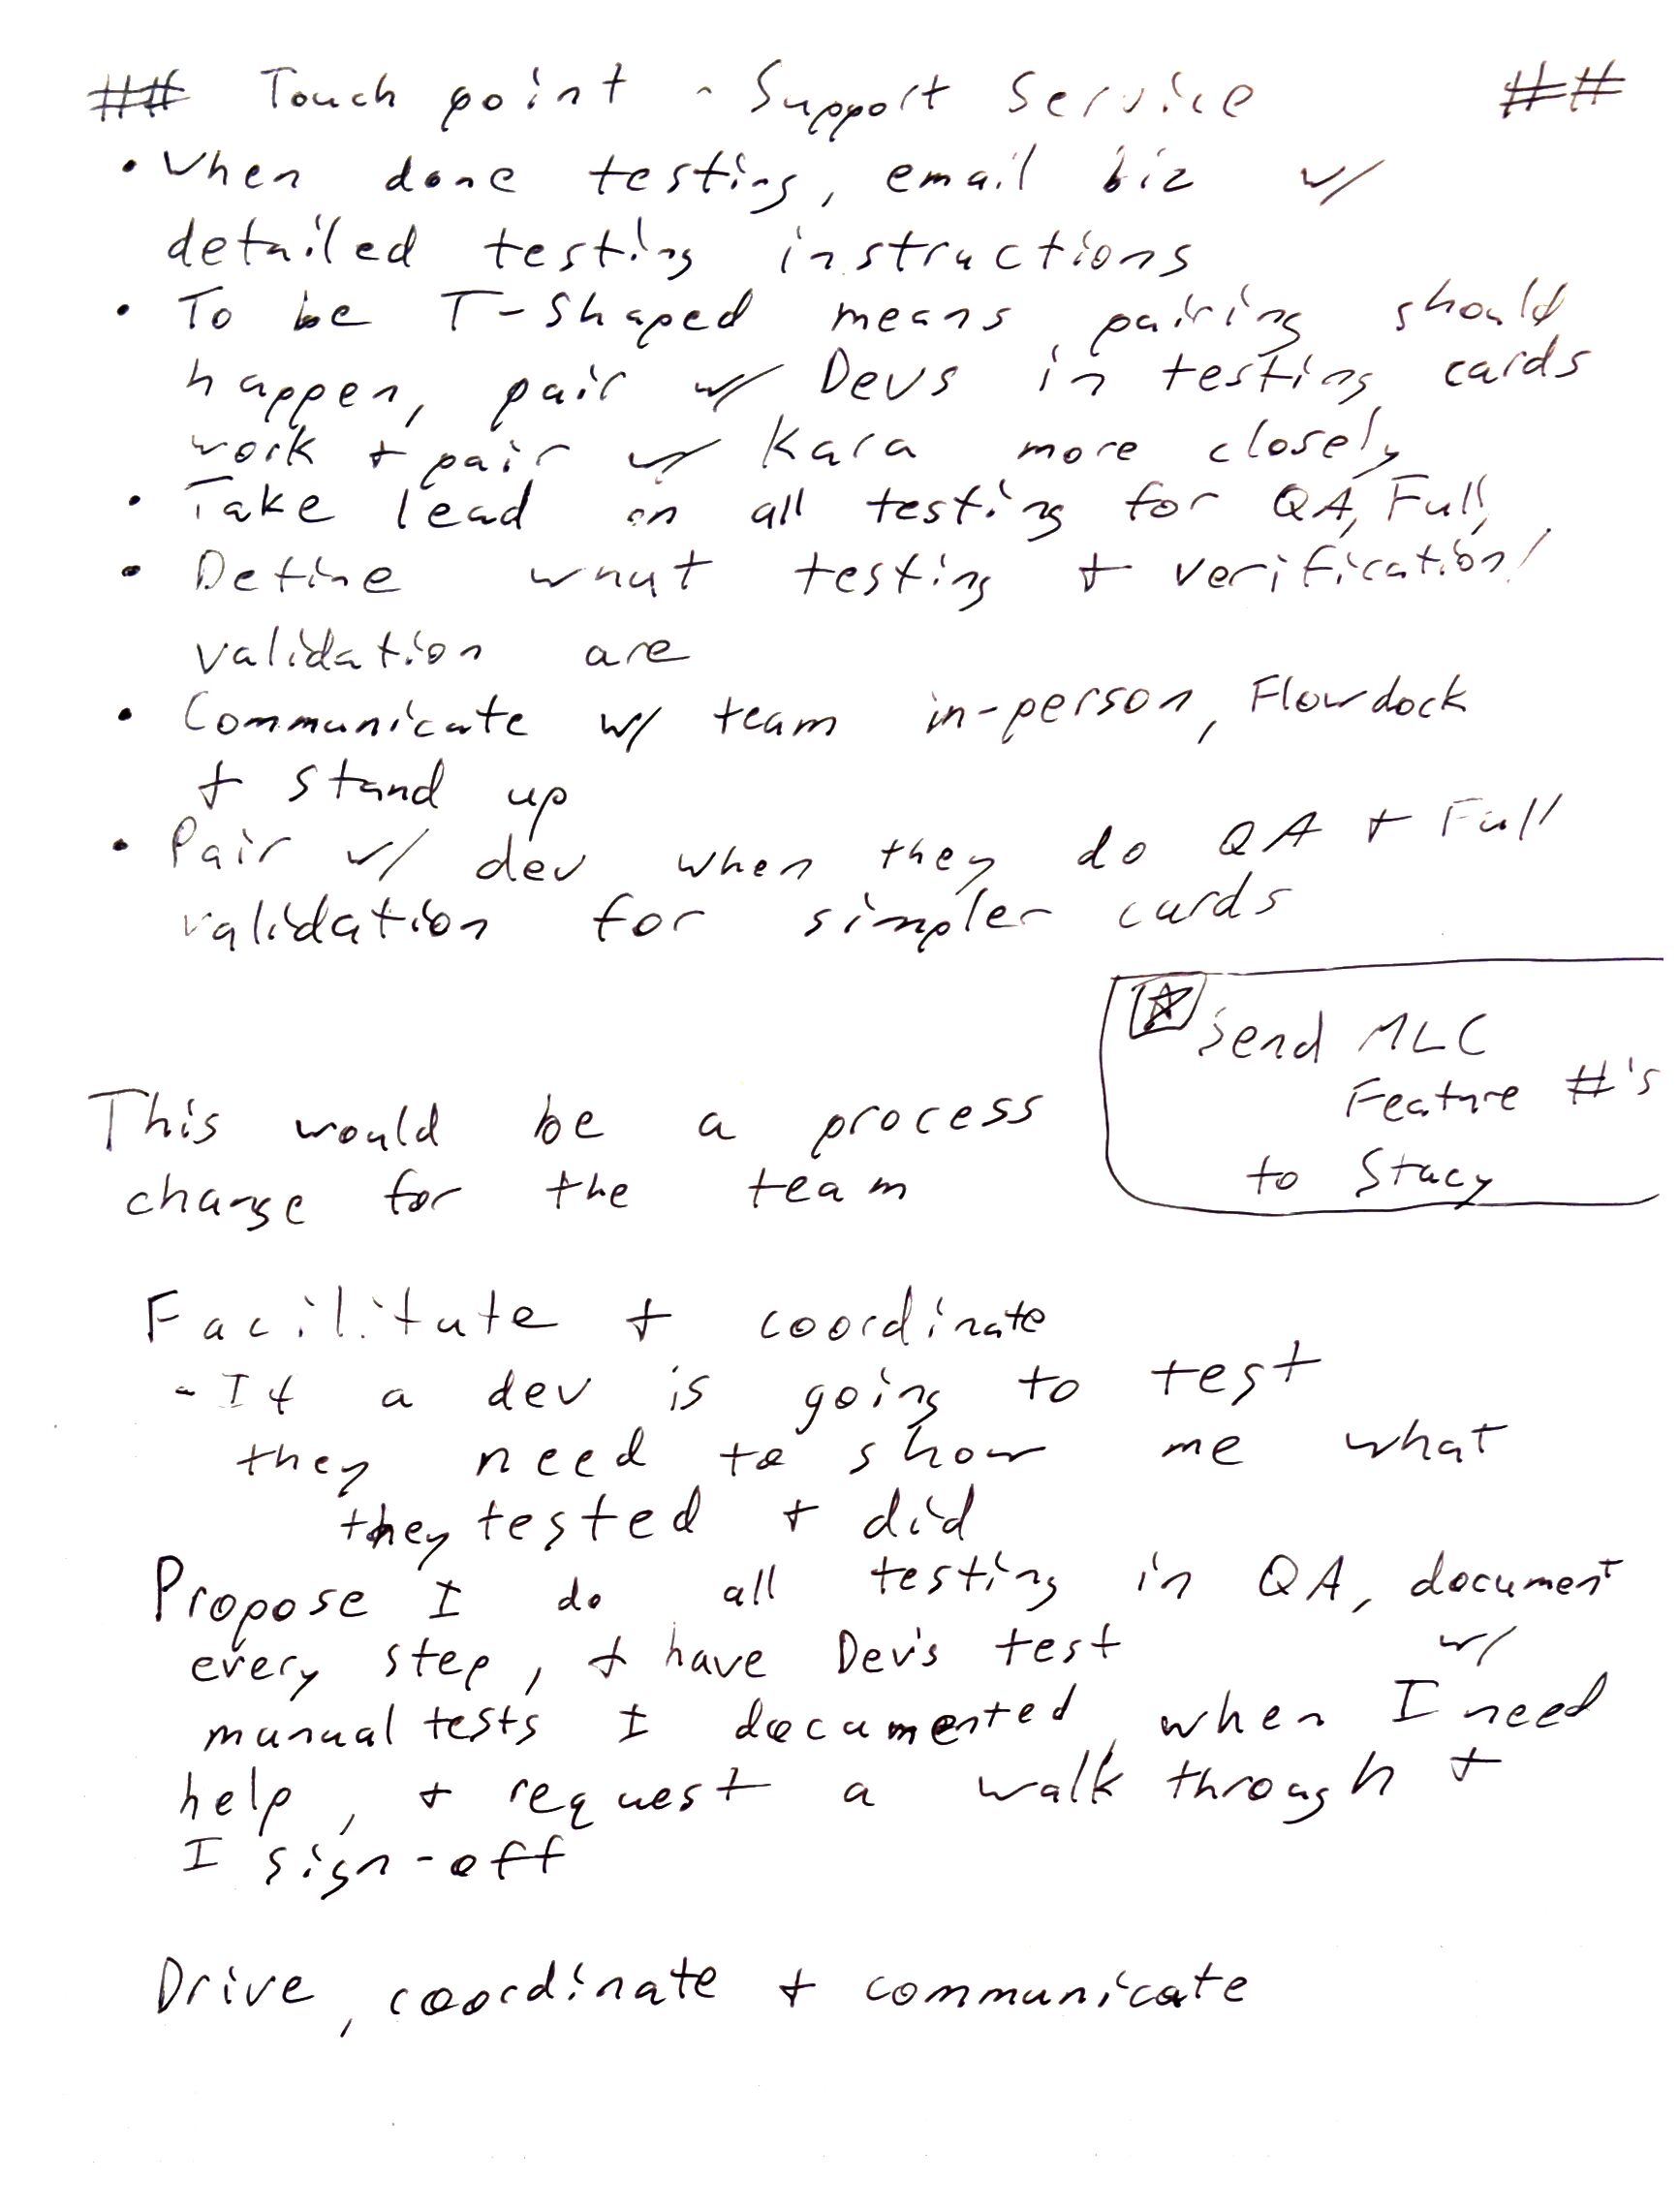 ## Touch point - Support Service ##
• When done testing, email biz w/
detailed testing instructions
• To be T-Shaped means pairing should
happen, pair w/ Devs in testing cards
work + pair w/ Kara more closely
• Take lead on all testing for QA, Full,
• Define what testing + verification/
validation are
• Communicate w/ team in-person, Flowdock
+ stand up
• Pair w/ dev when they do QA + Full
validation for simpler cards
Send MLC
Feature #'s
to Stacy
This would be a process
change for the team
Facilitate + coordinate
- If a dev is going to test
they need to show me what
they tested + did
Propose I do all testing in QA, document
every step, + have Dev's test w/
manual tests I documented, when I need
help, + request a walk through +
I sign-off
Drive, coordinate + communicate